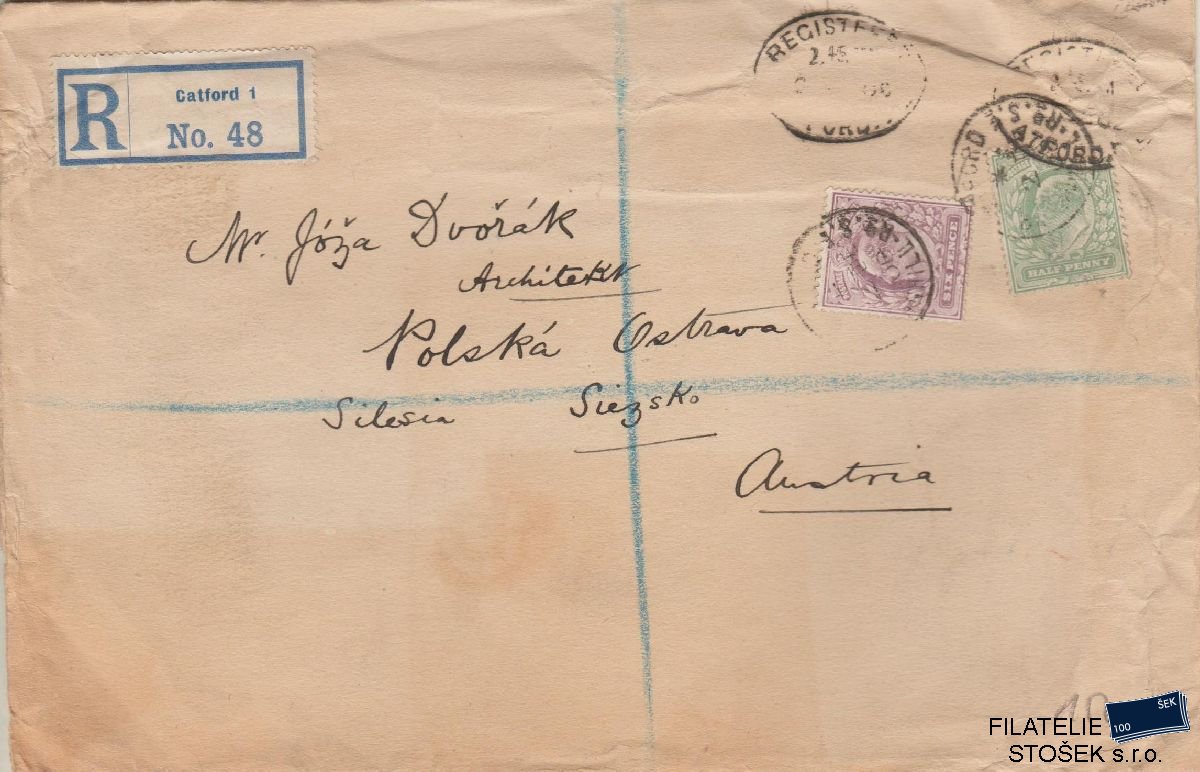 R
Catford 1
No. 48
REGISTERED
2.45
Mr. Jóža Dvořák
Architekt
Polská Ostrava
Silesia Slezsko
Austria
SIX PENCE
HALF PENNY
CATFORD
R.S.
10
100 ŠEK
FILATELIE
STOŠEK s.r.o.